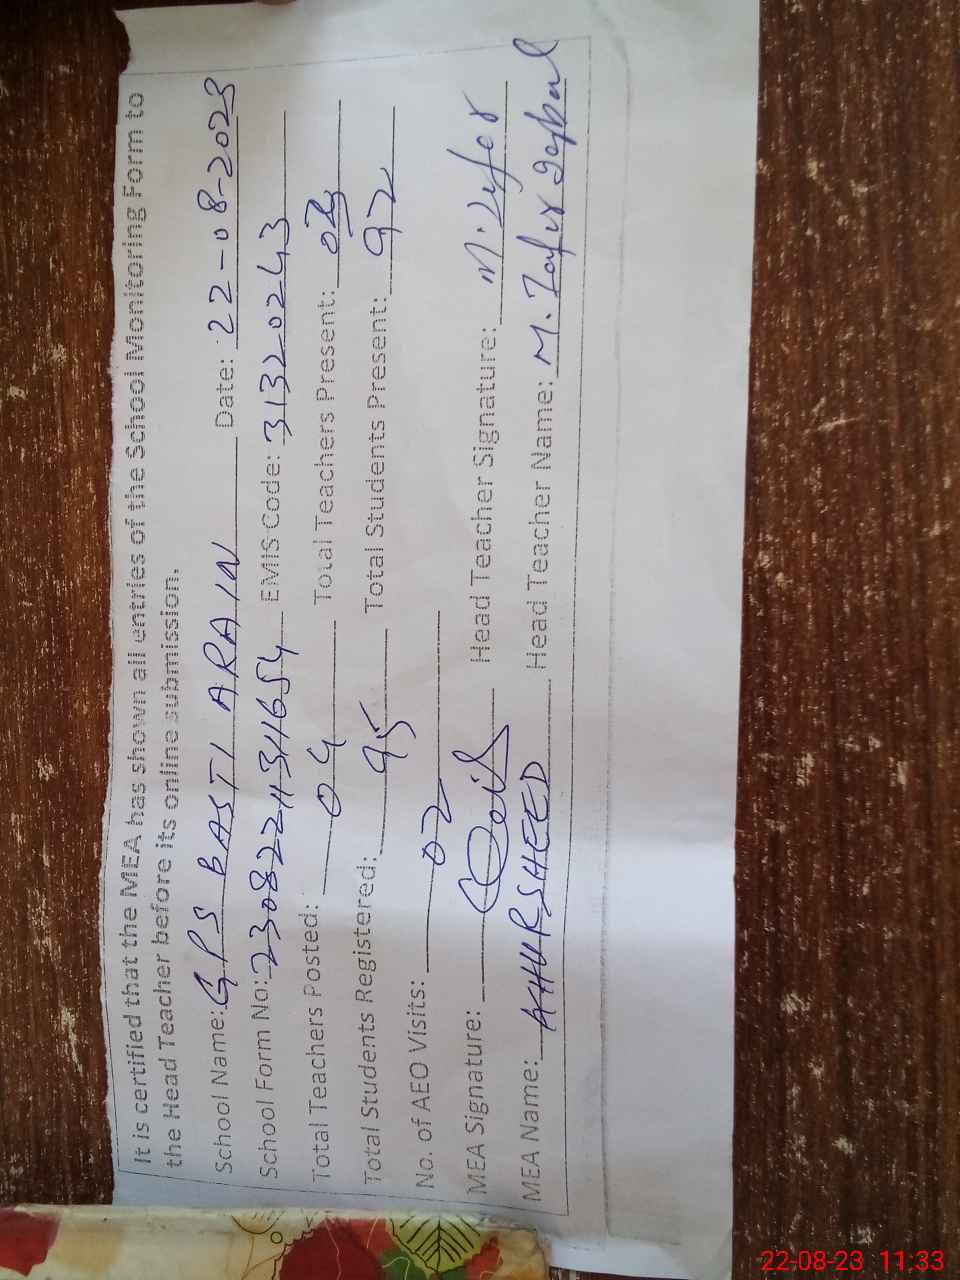 It is certified that the MEA has shown all entries of the School Monitoring Form to
the Head Teacher before its online submission.
School Name: GPS BASTI ARAIN Date: 22-08-2023
School Form No: 2308224311654 EMIS Code: 31320243
Total Teachers Posted: 04 Total Teachers Present:
Total Students Registered: 95 Total Students Present: 92
No. of AEO Visits: 02
MEA Signature: Head Teacher Signature: M. Zafar
MEA Name: KHURSHEED Head Teacher Name: M. Zafar Iqbal
22-08-23 11:33